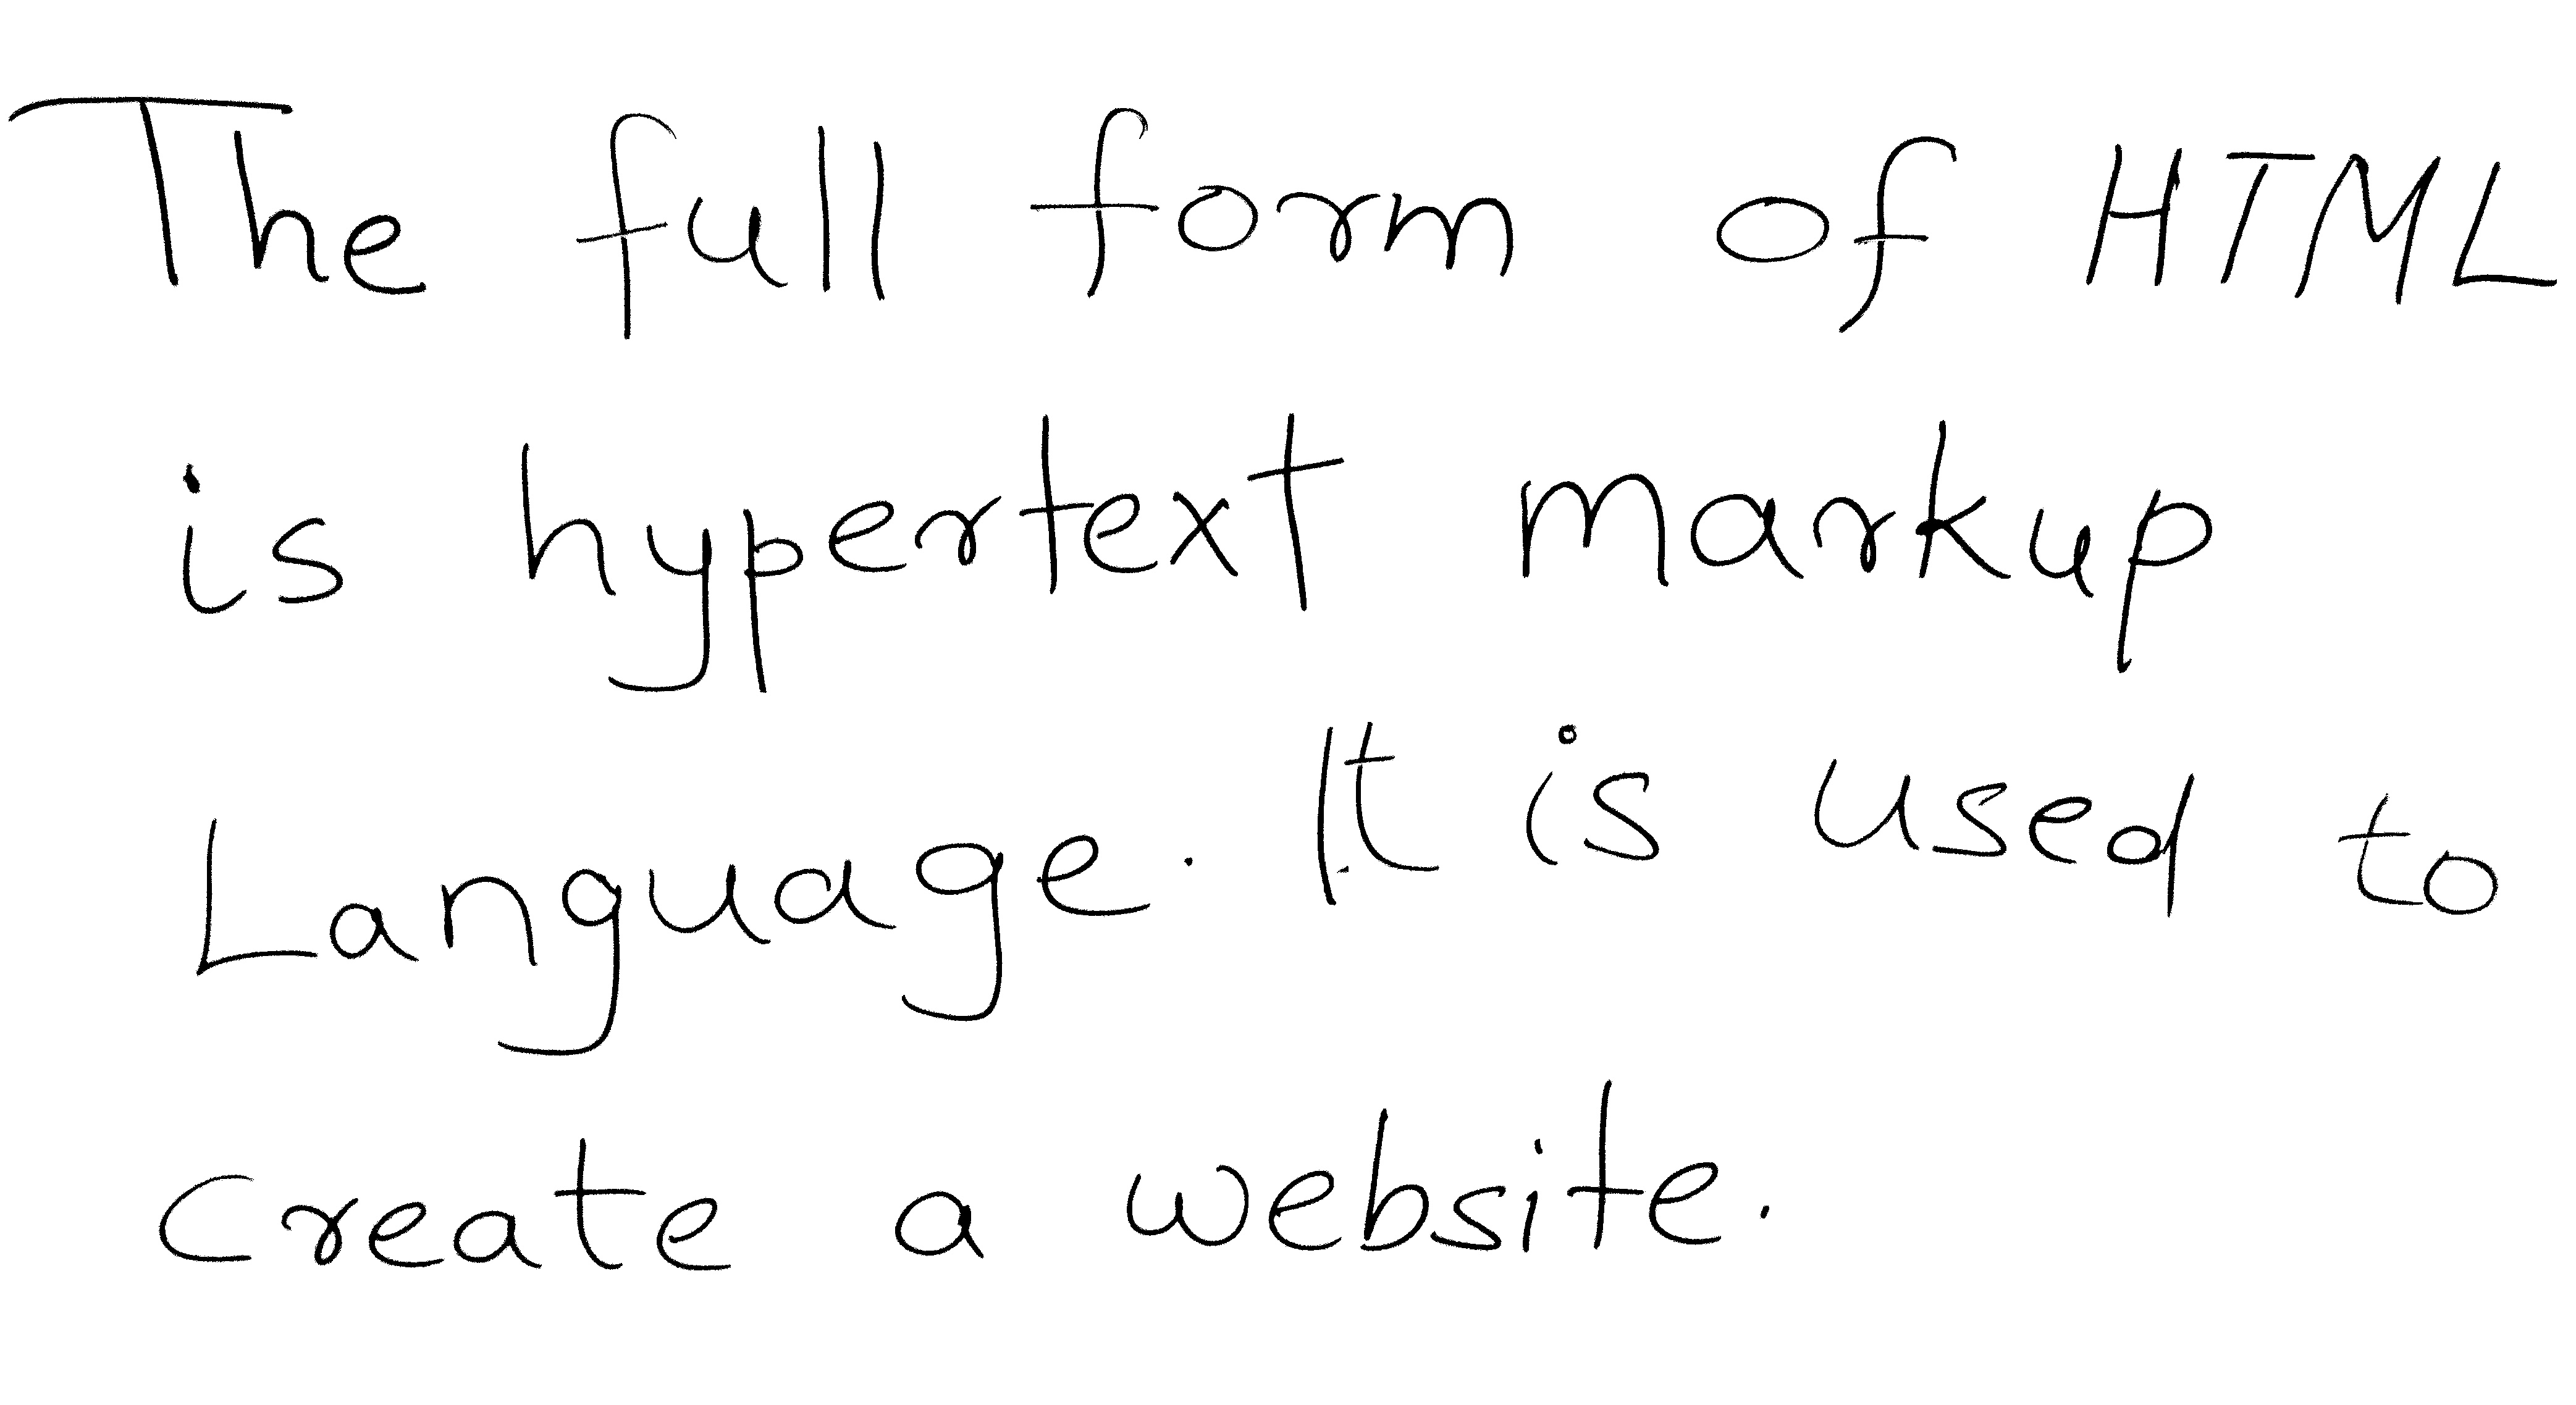 The full form of HTML
is hypertext markup
Language. It is used to
create a website.